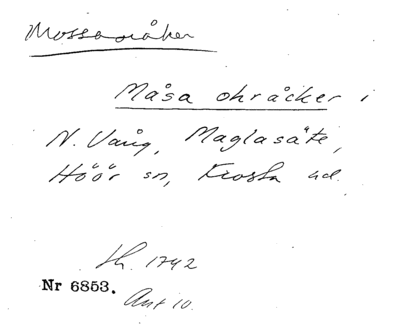 Mossaråker
Måsa ohråcker i
N. Vång, Maglasäte,
Höör sn, Frosta hd.
Lh. 1742
Nr 6853.
Avt 10.